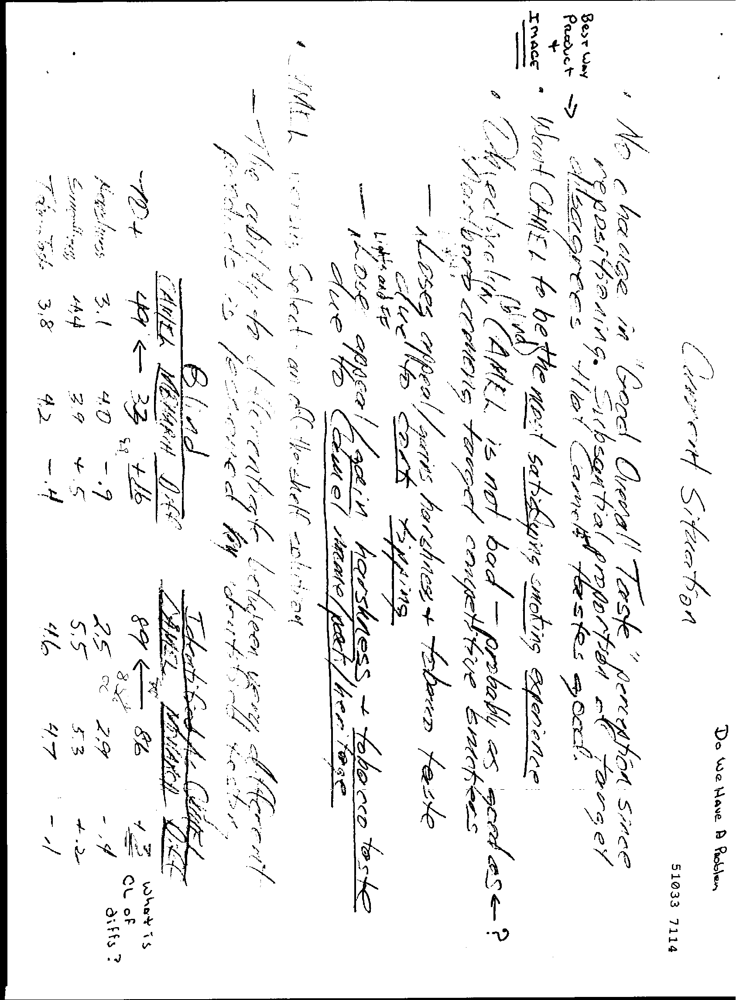 Do We Have A Problem
51033 7114
Current Situation
• No change in "Good Overall Taste" perception since
repositioning. Substantial proportion of target
disagrees that Camel tastes good.
Best Way
Product →
+
IMAGE
• Want CAMEL to be the most satisfying smoking experience
• Objectively (blind) CAMEL is not bad — probably as good as ← ?
Marlboro among target competitive smokers
— Loses appeal/gains harshness + tobacco taste
due to cork tipping
Lights and FF
— Lose appeal/gain harshness + tobacco taste
due to Camel name/pack/heritage
• CAMEL versus Select - an off the shelf solution
— The ability to differentiate between very different
products is
Blind
Identified as CAMEL
CAMEL
DIFF
CAMEL
DIFF
49 ← 33 +16
89 ← 86 +3
What is
CL of
diffs?
Harshness 3.1 4.0 -.9
2.5 2.9 -.4
Smoothness 4.4 3.9 +.5
5.5 5.3 +.2
3.8 4.2 -.4
4.6 4.7 -.1